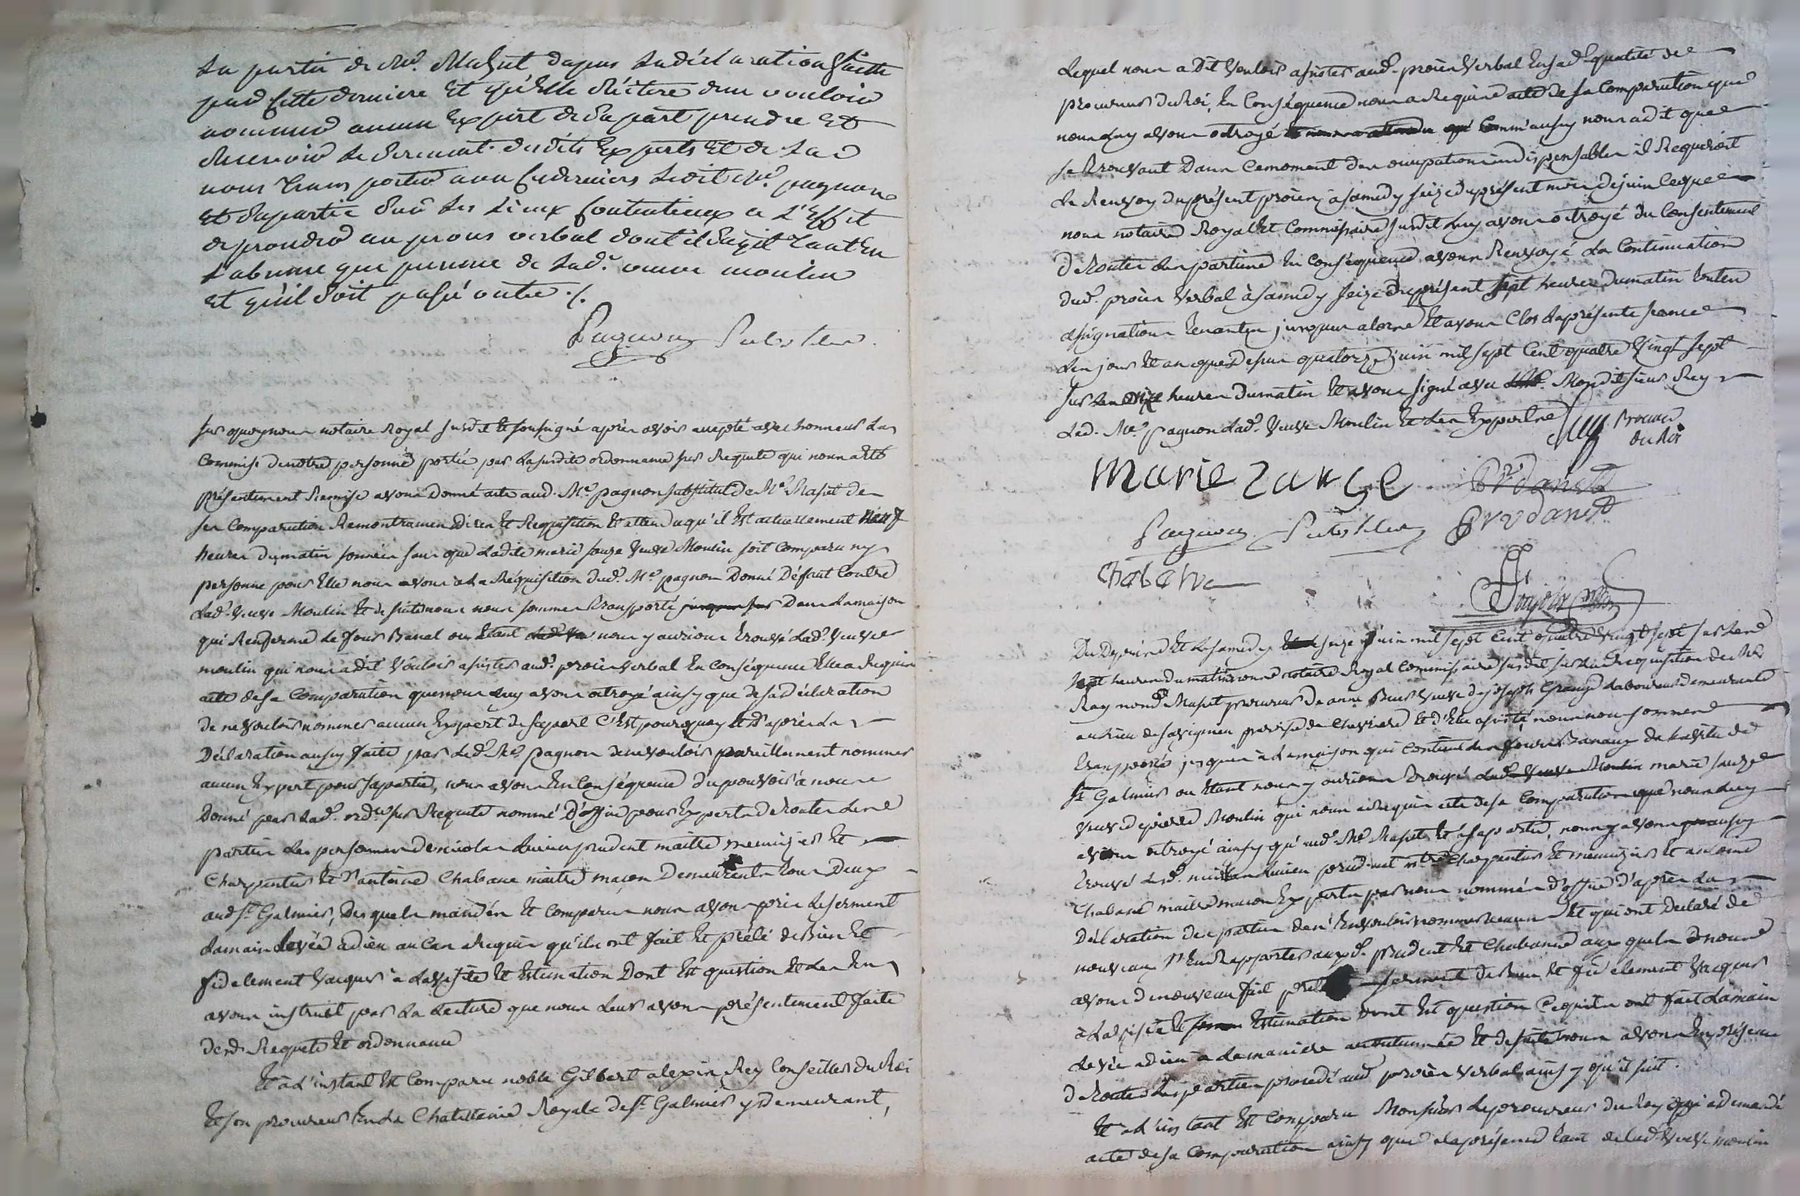 La partie de Me. Maset depuis la déclaration faitte
par cette derniere et qu'elle déclere deur vouloir
nommer aucun expert de sa part prendre et
recevoir le serment desdits experts et de la
nous transporter avec ces derniers ledit Me. pagnon
et sa partie sur les lieux contentieux a l'effet
de prendre au procès verbal dont il s'agit tant en
l'absence que presence de lade. veuve moulin
et qu'il soit passé outre ./.
Pagnon Substitut
Sur quoy nous notaire Royal susdit et soussigné après avoir accepté avec honneur la
Commise de notre personne portée par la susdite ordonnance sur Requete qui nous a été
présentement Remise avons donné acte aud. Me. pagnon substitut de Me. Maset de
ses Comparution Remontrances dires et Requisition et attendu qu'il est actuellement neuf
heures du matin sonnées sans que ladite marie sauze veuve Moulin soit comparu ny
personne pour Elle nous avons à la Réquisition dud. Me. pagnon Donné Défaut Contre
Lad. Veuve Moulin et de suitte nous nous sommes transporté Dans la maison
qui Renferme le four Banal ou étant nous y aurions trouvé lad. veuve
moulin qui nous a dit vouloir assister aud. procès verbal En conséquence Elle a Requis
acte de sa Comparution que nous luy avons octroyé ainsy que de sa Déclaration
de ne vouloir nommer aucun Expert de sa part C'est pourquoy et d'après la
Déclaration aussy faite par led. Me. pagnon de ne vouloir pareillement nommer
aucun Expert pour sa partie, nous avons En Conséquence du pouvoir à nous
Donné par lad. ordce. sur Requete nommé D'office pour Experts de toutes les
parties les personnes de nicolas Lucien prudent maitre menuisier et
Charpentier et d'antoine Chabane maitre maçon Demeurants tous Deux
aud. St. Galmier, Desquels mandés et Comparus nous avons pris le serment
la main Levée a dieu au Cas Requis qu'ils ont fait et prété de Bien et
fidelement Vacquer à la visite et Estimation Dont Est question et les En
avons instruit par la Lecture que nous leur avons présentement faite
desd. Requete et ordonnance
Et à l'instant Est Comparu noble Gilbert alexis Rey Conseiller du Roi
et son procureur En la Chatellenie Royale de St. Galmier y Demeurant,
Lequel nous a Dit vouloir assister aud. procès verbal En sad. qualité de
procureur du Roi, En Conséquence nous a Requis acte de sa Comparution que
nous luy avons octroyé Comm'aussy nous a dit que
se trouvant Dans ce moment des occupations indispensables il Requeroit
le Renvoy du présent procès à samedy seize du présent mois de juin lequel
nous notaire Royal et Commissaire susdit luy avons octroyé du Consentement
de toutes les parties En conséquence avons Renvoyé la Continuation
dud. procès verbal à samedy seize du présent sept heures du matin toutes
assignations tenantes jusqu'alors et avons Clos la présente séance
les jour et an que dessus quatorze juin mil sept Cent quatre vingt sept
sur les onze heures du matin et avons signé avec Mondit sieur Rey
Led. Me. pagnon Lad. Veuve Moulin et les Experts
Rey Procur. du Roi
Marie zauze
Pagnon Substitut
Chabane
Du Depuis Et le samedy seize juin mil sept Cent quatre vingt sept sur les
sept heures du matin nous notaire Royal Commissaire susdit sur la Requisition de Me.
Rey mond. Maset procureur de anne veuve de joseph Grange Laboureur demeurante
au lieu de savigneu paroisse de Chevriere et d'Elle assisté nous nous sommes
transportés jusques à la maison qui Contient les fours Banaux de la ville de
St. Galmier ou étant nous y aurions trouvé marie sauze
veuve de pierre Moulin qui nous a Requis acte de sa Comparution que nous luy
avons octroyé ainsy qu'aud. Me. Maset et à sa partie, nous y avons aussy
trouvé led. nicolas Lucien prudent Me. Charpentier et menuisier et antoine
Chabane maitre maçon Experts par nous nommés d'office d'après la
Déclaration des parties de n'En vouloir nommer aucun Et qui ont Declaré de
nouveau s'En Rapporter auxd. prudent et Chabanne auxquels nous
avons de nouveau fait préter serment de Bien et fidelement Vacquer
à la visite et Estimation dont Est question Ce qu'ils ont fait la main
Levée a dieu à la maniere accoutumée et de suite nous avons En présence
de toutes les parties procedé aud. procès verbal ainsy qu'il suit.
Et à l'instant Est Comparu Monsieur le procureur du Roy qui a demandé
acte de sa Comparution ainsy que de la présence tant de lad. veuve moulin